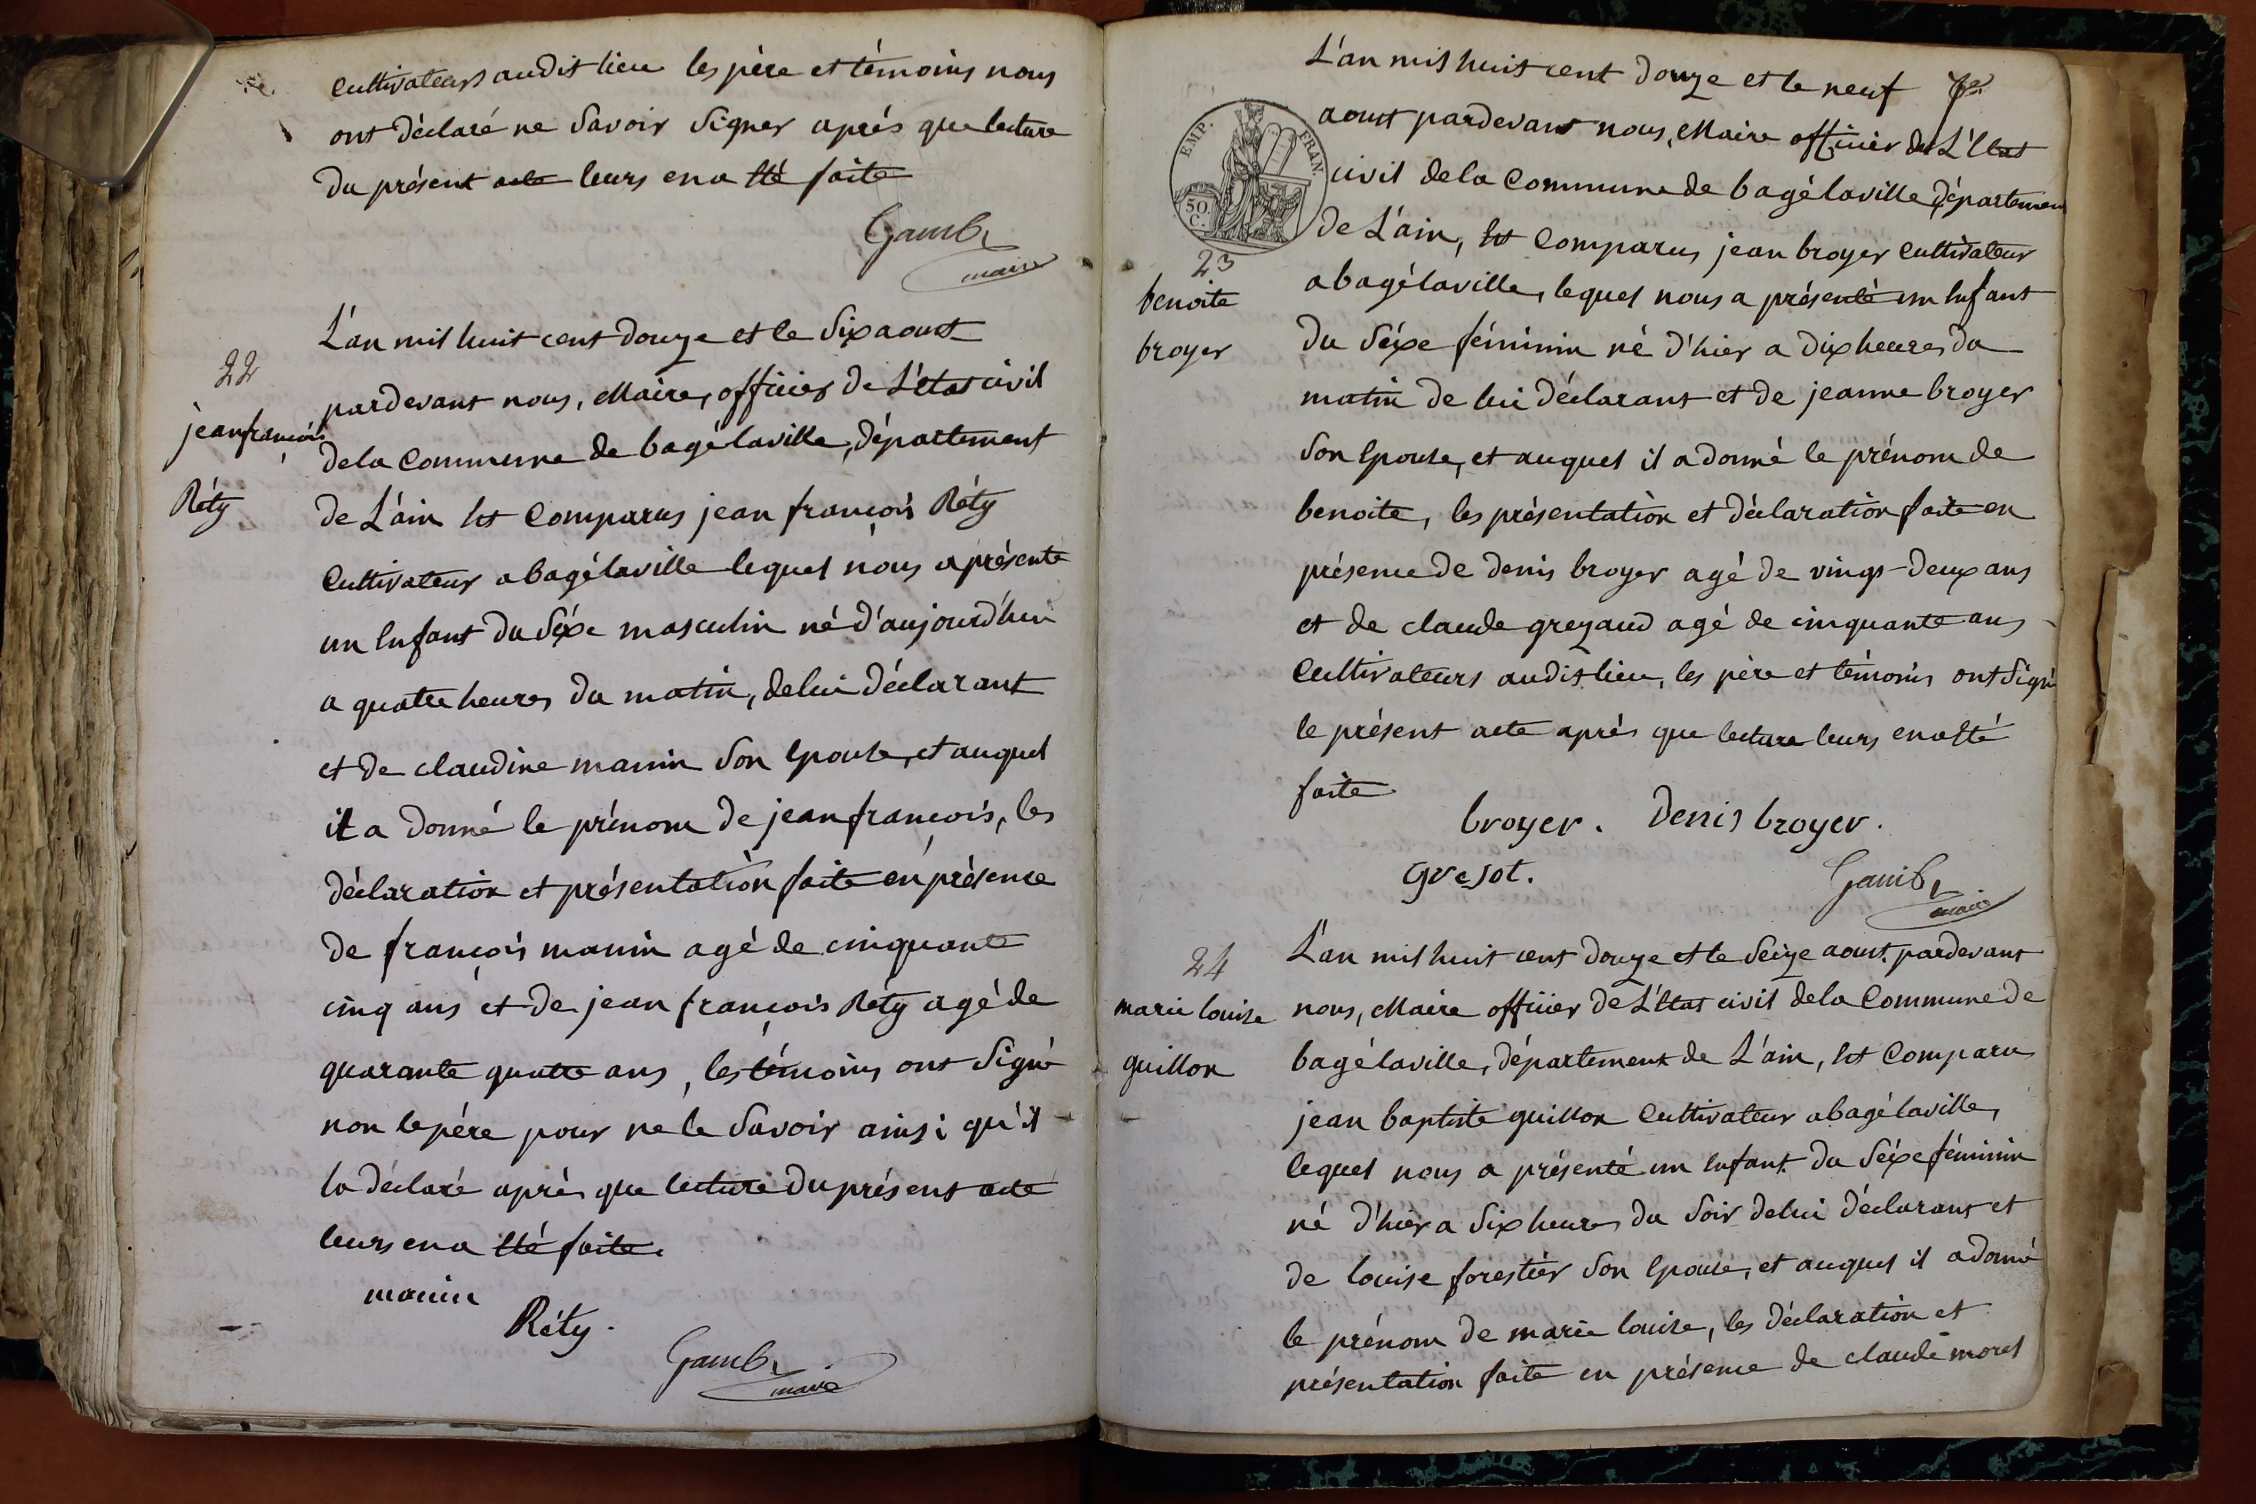 cultivateurs audit lieu les père et témoins nous
ont déclaré ne savoir signer après que lecture
du présent acte leurs en a été faite
Gamb
maire
22
jean françois
Réty
L'an mil huit cent douze et le six aoust
pardevant nous, Maire, officier de L'état civil
de la Commune de bagé laville, département
de L'ain est Comparus jean françois Réty
Cultivateur a bagé laville lequel nous a présenté
un enfant du séxe masculin né d'aujourd'hui
a quatre heures du matin, de lui déclarant
et de claudine manin son epouse, et auquel
il a donné le prénom de jean françois, les
déclaration et présentation faite en présence
de françois manin agé de cinquante
cinq ans et de jean françois Réty agé de
quarante quatre ans, les témoins ont signé
non le père pour ne le savoir ainsi qu'il
la déclaré après que lecture du présent acte
leurs en a été faite.
manin
Réty.
Gamb
maire
L'an mil huit cent douze et le neuf
aoust pardevant nous, Maire officier de L'état
civil de la Commune de bagé laville, département
de L'ain, est Comparus jean broyer cultivateur
a bagé laville, lequel nous a présenté un enfant
du séxe féminin né d'hier a dix heures du
matin de lui déclarant et de jeanne broyer
son epouse, et auquel il a donné le prénom de
benoite, les présentation et déclaration faite en
présence de denis broyer agé de vingt-deux ans
et de claude grezaud agé de cinquante ans
Cultivateurs audit lieu, les père et témoins ont signé
le présent acte après que lecture leurs en a été
faite
EMP. FRAN.
50.
C.
23
benoite
broyer
broyer. Denis broyer.
Gresot.
Gamb
maire
24
marie louise
guillon
L'an mil huit cent douze et le seize aoust pardevant
nous, Maire officier de L'état civil de la Commune de
bagé laville, département de L'ain, est Comparu
jean baptiste guillon Cultivateur a bagé laville,
lequel nous a présenté un enfant du séxe féminin
né d'hier a six heures du soir de lui déclarant et
de louise forestier son epouse, et auquel il a donné
le prénom de marie louise, les déclaration et
présentation faite en présence de claude morel